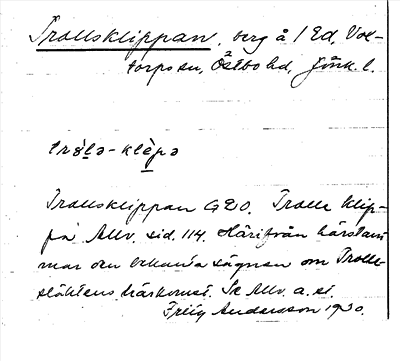 Trollsklippan, berg å / Ed, Vox-
torps sn, Östbo hd, Jönk. l.
Trollsklippan G20. Trolle klip-
pa Allv. sid. 114. Härifrån härstam
mar den bekanta sägnen om Trolle-
släktens härkomst. Se Allv. a. st.
Frity Andersson 1920.